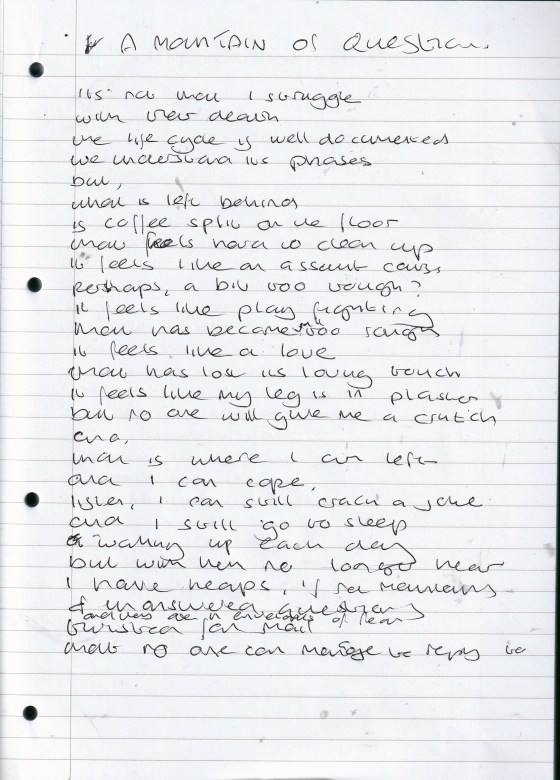 A MOUNTAIN OF QUESTIONS
its not that I struggle
with their death
the life cycle is well documented
we understand its phases
but,
what is left behind
is coffee split on the floor
that feels hard to clean up
it feels like an assault
Perhaps, a bit too rough?
it feels like play fighting
that has become too rough
it feels like a love
that has lost its loving touch
it feels like my leg is in plaster
but no one will give me a crutch
and,
that is where I am left
and I can cope.
listen, I can still crack a joke
and I still go to sleep
waking up each day
but with no longer near
I have heaps, if not mountains
of unanswered questions
of
fan mail
that no one can manage to reply to